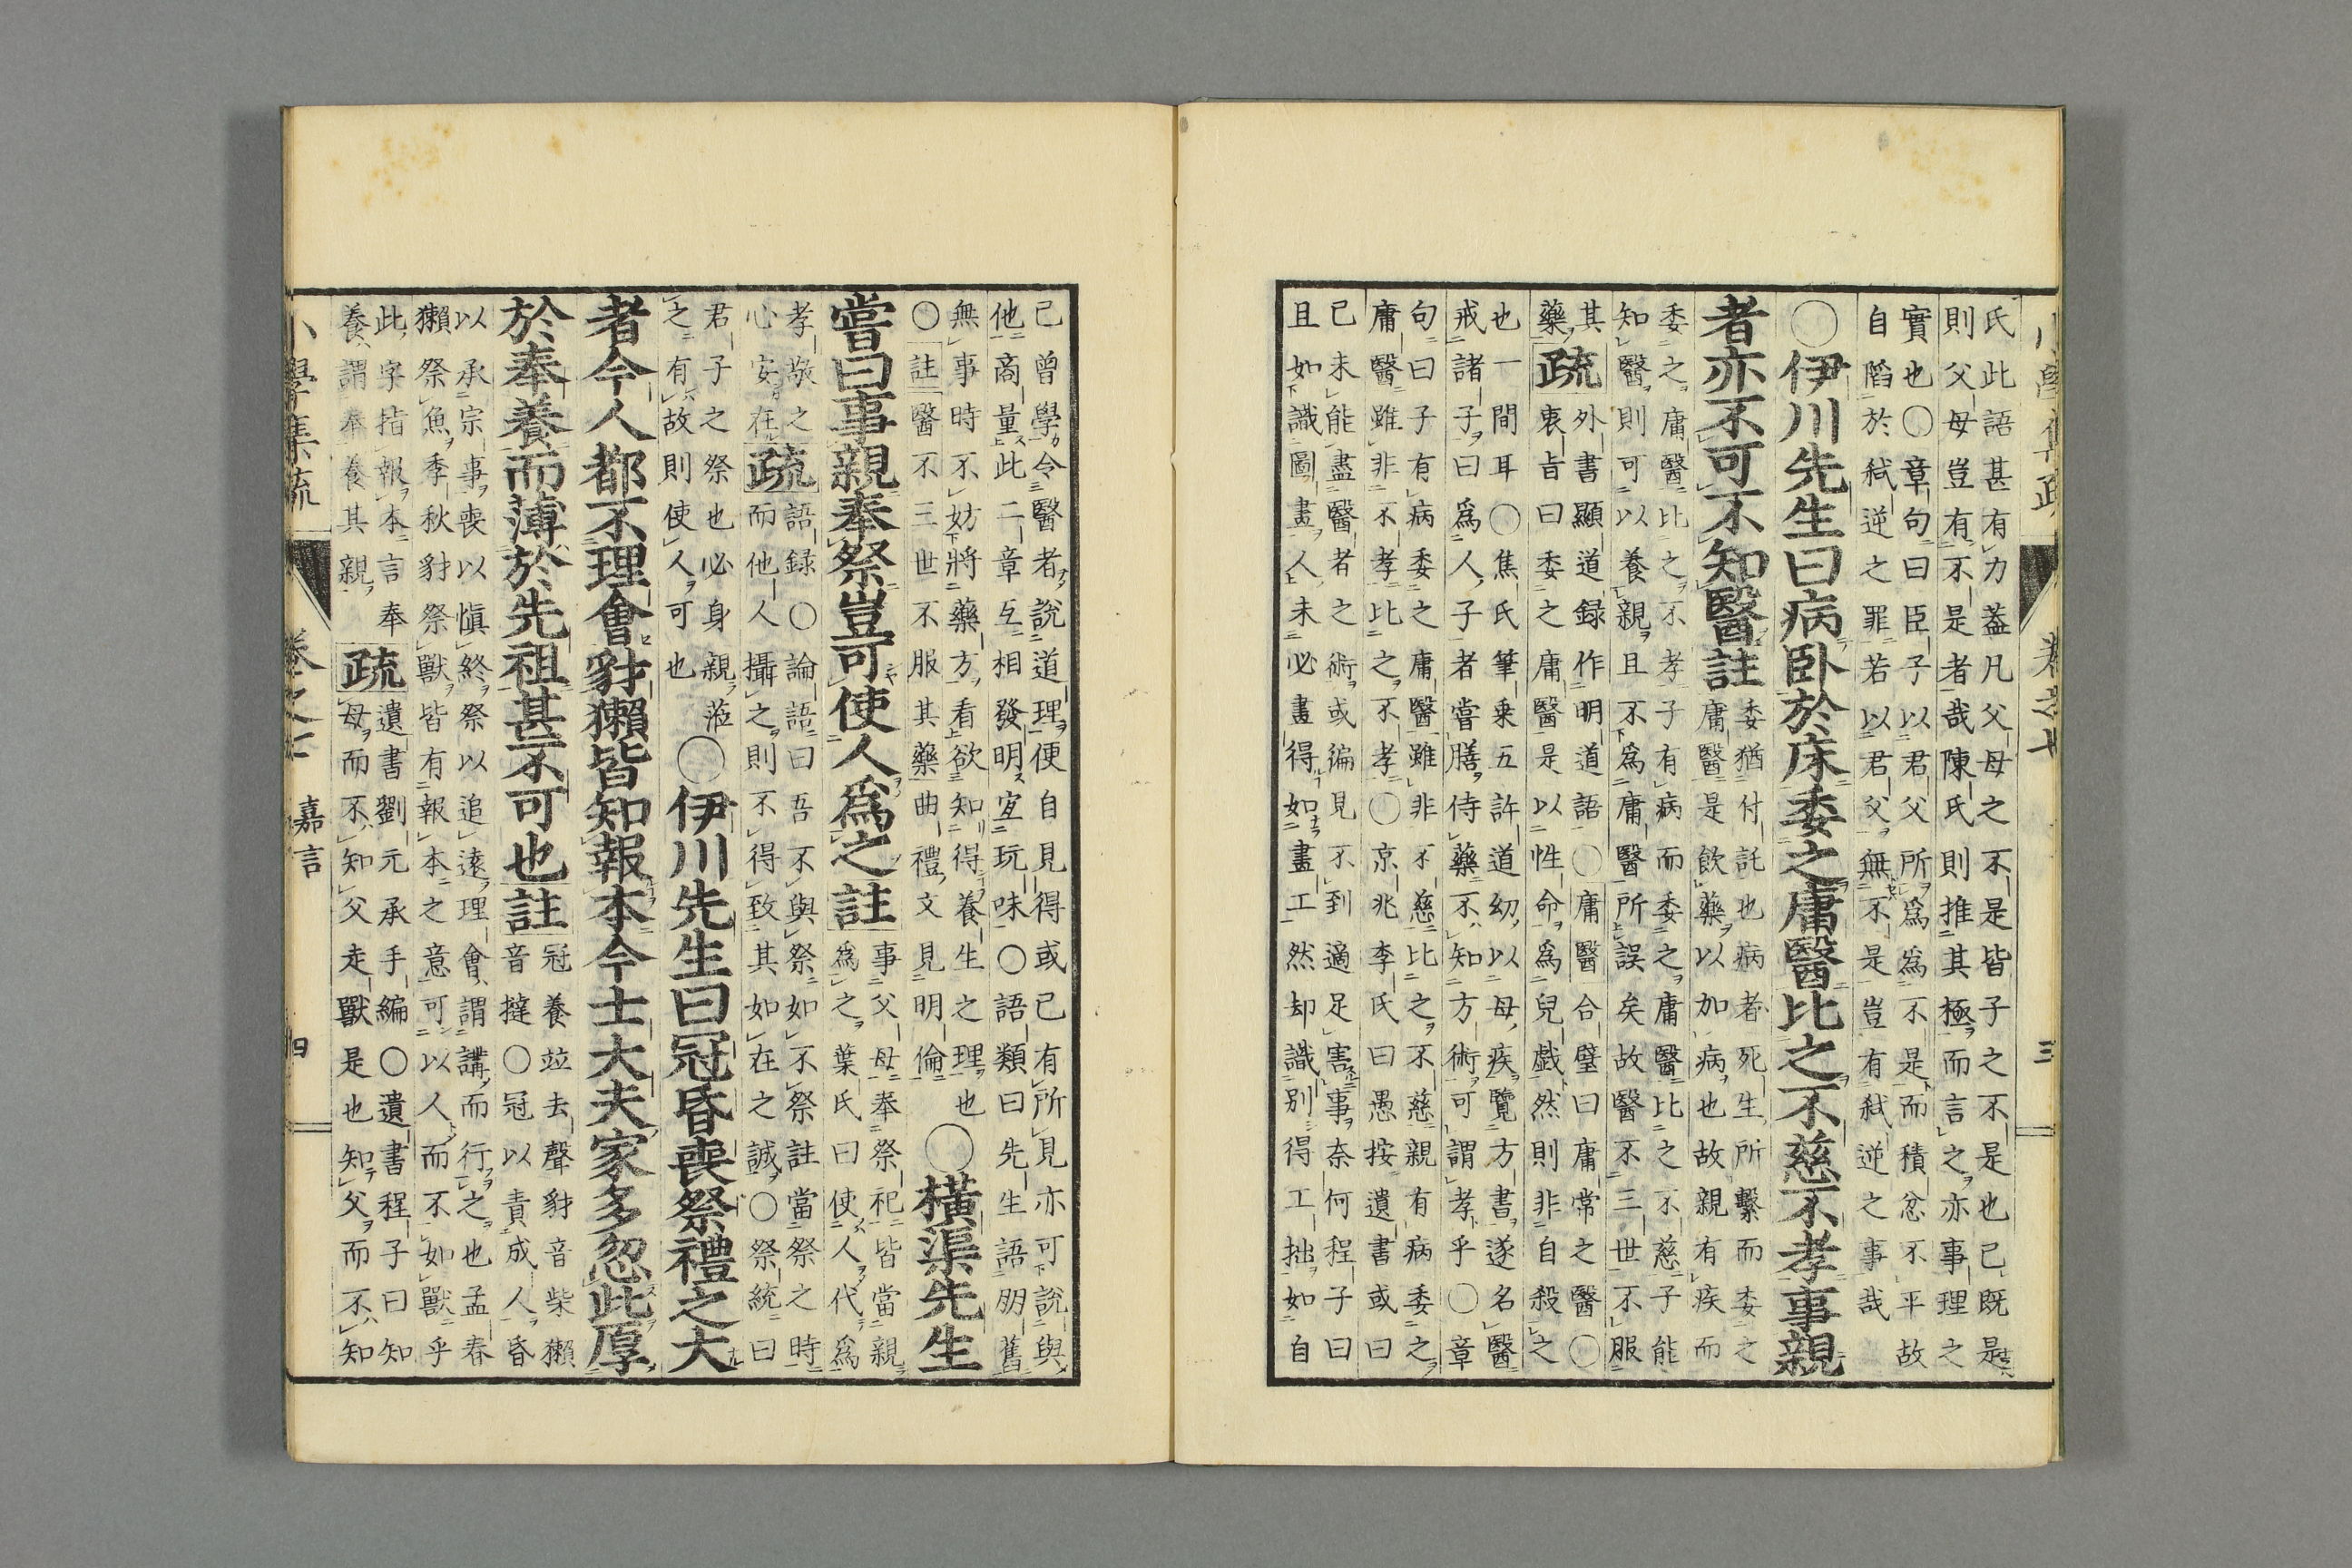 氏此語甚有力蓋凡父母之不是皆子之不是也已既是
則父母豈有不是者哉陳氏則推其極而言之亦事理之
實也〇章句曰臣子以君父所爲爲不是而積忿不平故
自䧟於弒逆之罪若以君父無不是豈有弒逆之事哉
〇伊川先生曰病臥於床委之庸醫比之不慈不孝事親
者亦不可不知醫註
委猶付託也病者死生所繫而委之
庸醫是飲藥以加病也故親有疾而
委之庸醫比之不孝子有病而委之庸醫比之不慈子能
知醫則可以養親且不爲庸醫所誤矣故醫不三世不服
其
藥疏
外書顯道録作明道語〇庸醫合璧曰庸常之醫〇
衷旨曰委之庸醫是以性命爲兒戲然則非自殺之
也一間耳〇焦氏筆乗五許道幼以母疾覽方書遂名醫
戒諸子曰爲人子者嘗膳侍藥不知方術可謂孝乎〇章
句曰子有病委之庸醫雖非不慈比之不慈親有病委之
庸醫雖非不孝比之不孝〇京兆李氏曰愚按遺書或曰
已未能盡醫者之術或徧見不到適足害事奈何程子曰
且如識圖畫人未必畫得如畫工然却識別得工拙如自
小學集疏 卷之七 三
已曾學令醫者說道理便自見得或已有所見亦可說與
他商量此二章互相發明宐玩味〇語類曰先生語朋舊
無事時不妨將藥方看欲知得養生之理也
〇註醫不三世不服其藥曲禮文見明倫
〇橫渠先生
嘗曰事親奉祭豈可使人爲之註
事父母奉祭祀皆當親
爲之葉氏曰使人代爲
孝敬之
心安在疏
語録〇論語曰吾不與祭如不祭註當祭之時
而他人攝之則不得致其如在之誠〇祭統曰
君子之祭也必身親涖
之有故則使人可也
〇伊川先生曰冠昏喪祭禮之大
者今人都不理會豺獺皆知報本今士大夫家多忽此厚
於奉養而薄於先祖甚不可也註
冠養竝去聲豺音柴獺
音撻〇冠以責成人昏
以承宗事喪以愼終祭以追遠理會謂講而行之也孟春
獺祭魚季秋豺祭獸皆有報本之意可以人而不如獸乎
此字指報本言奉
養謂奉養其親
疏
遺書劉元承手編〇遺書程子曰知
母而不知父走獸是也知父而不知
小學集疏 卷之七 嘉言 四